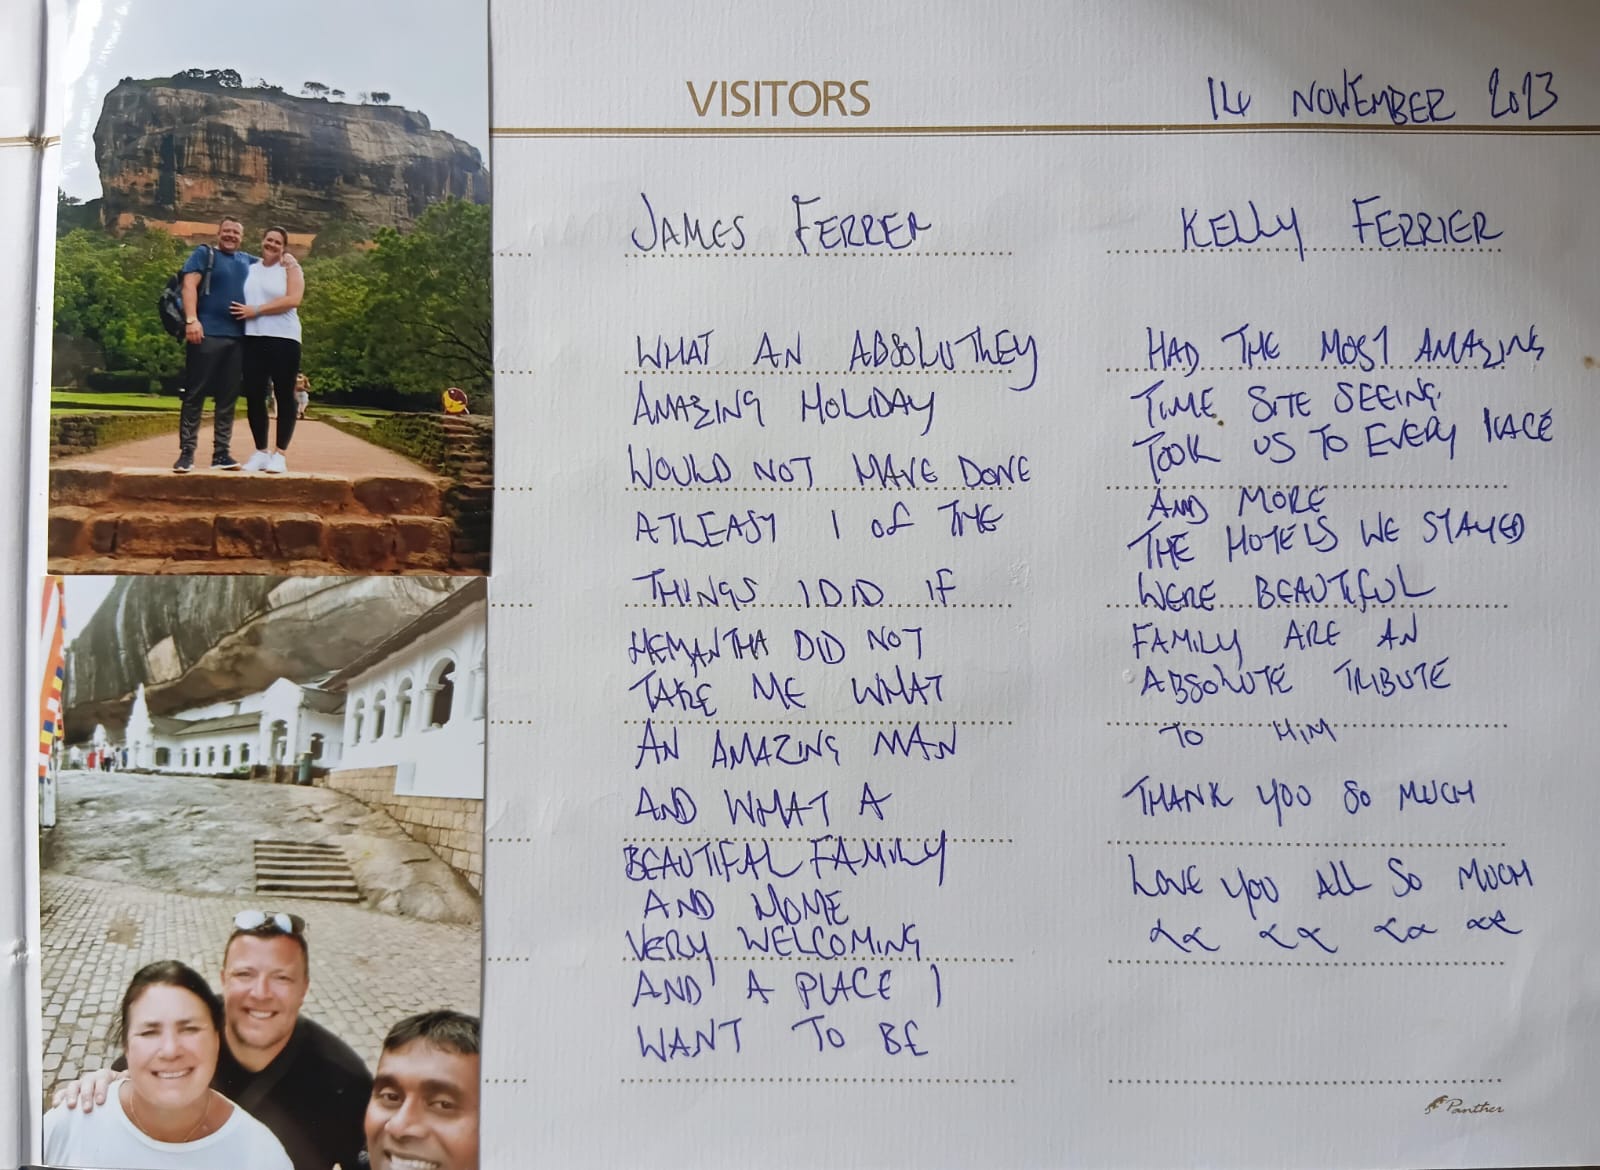 VISITORS
14 NOVEMBER 2023
JAMES FERRER
WHAT AN ABSOLUTHEY
AMAZING HOLIDAY
WOULD NOT HAVE DONE
ATLEAST 1 OF THE
THINGS I DID IF
HEMANTHA DID NOT
TAKE ME WHAT
AN AMAZING MAN
AND WHAT A
BEAUTIFAL FAMILY
AND HOME
VERY WELCOMING
AND A PLACE I
WANT TO BE
KELLY FERRIER
HAD THE MOST AMAZING
TIME SITE SEEING.
TOOK US TO EVERY PLACE
AND MORE
THE HOTELS WE STAYED
WERE BEAUTIFUL
FAMILY ARE AN
ABSOLUTE TRIBUTE
TO HIM
THANK YOU SO MUCH
LOVE YOU ALL SO MUCH
xx xx xx xx
Panther